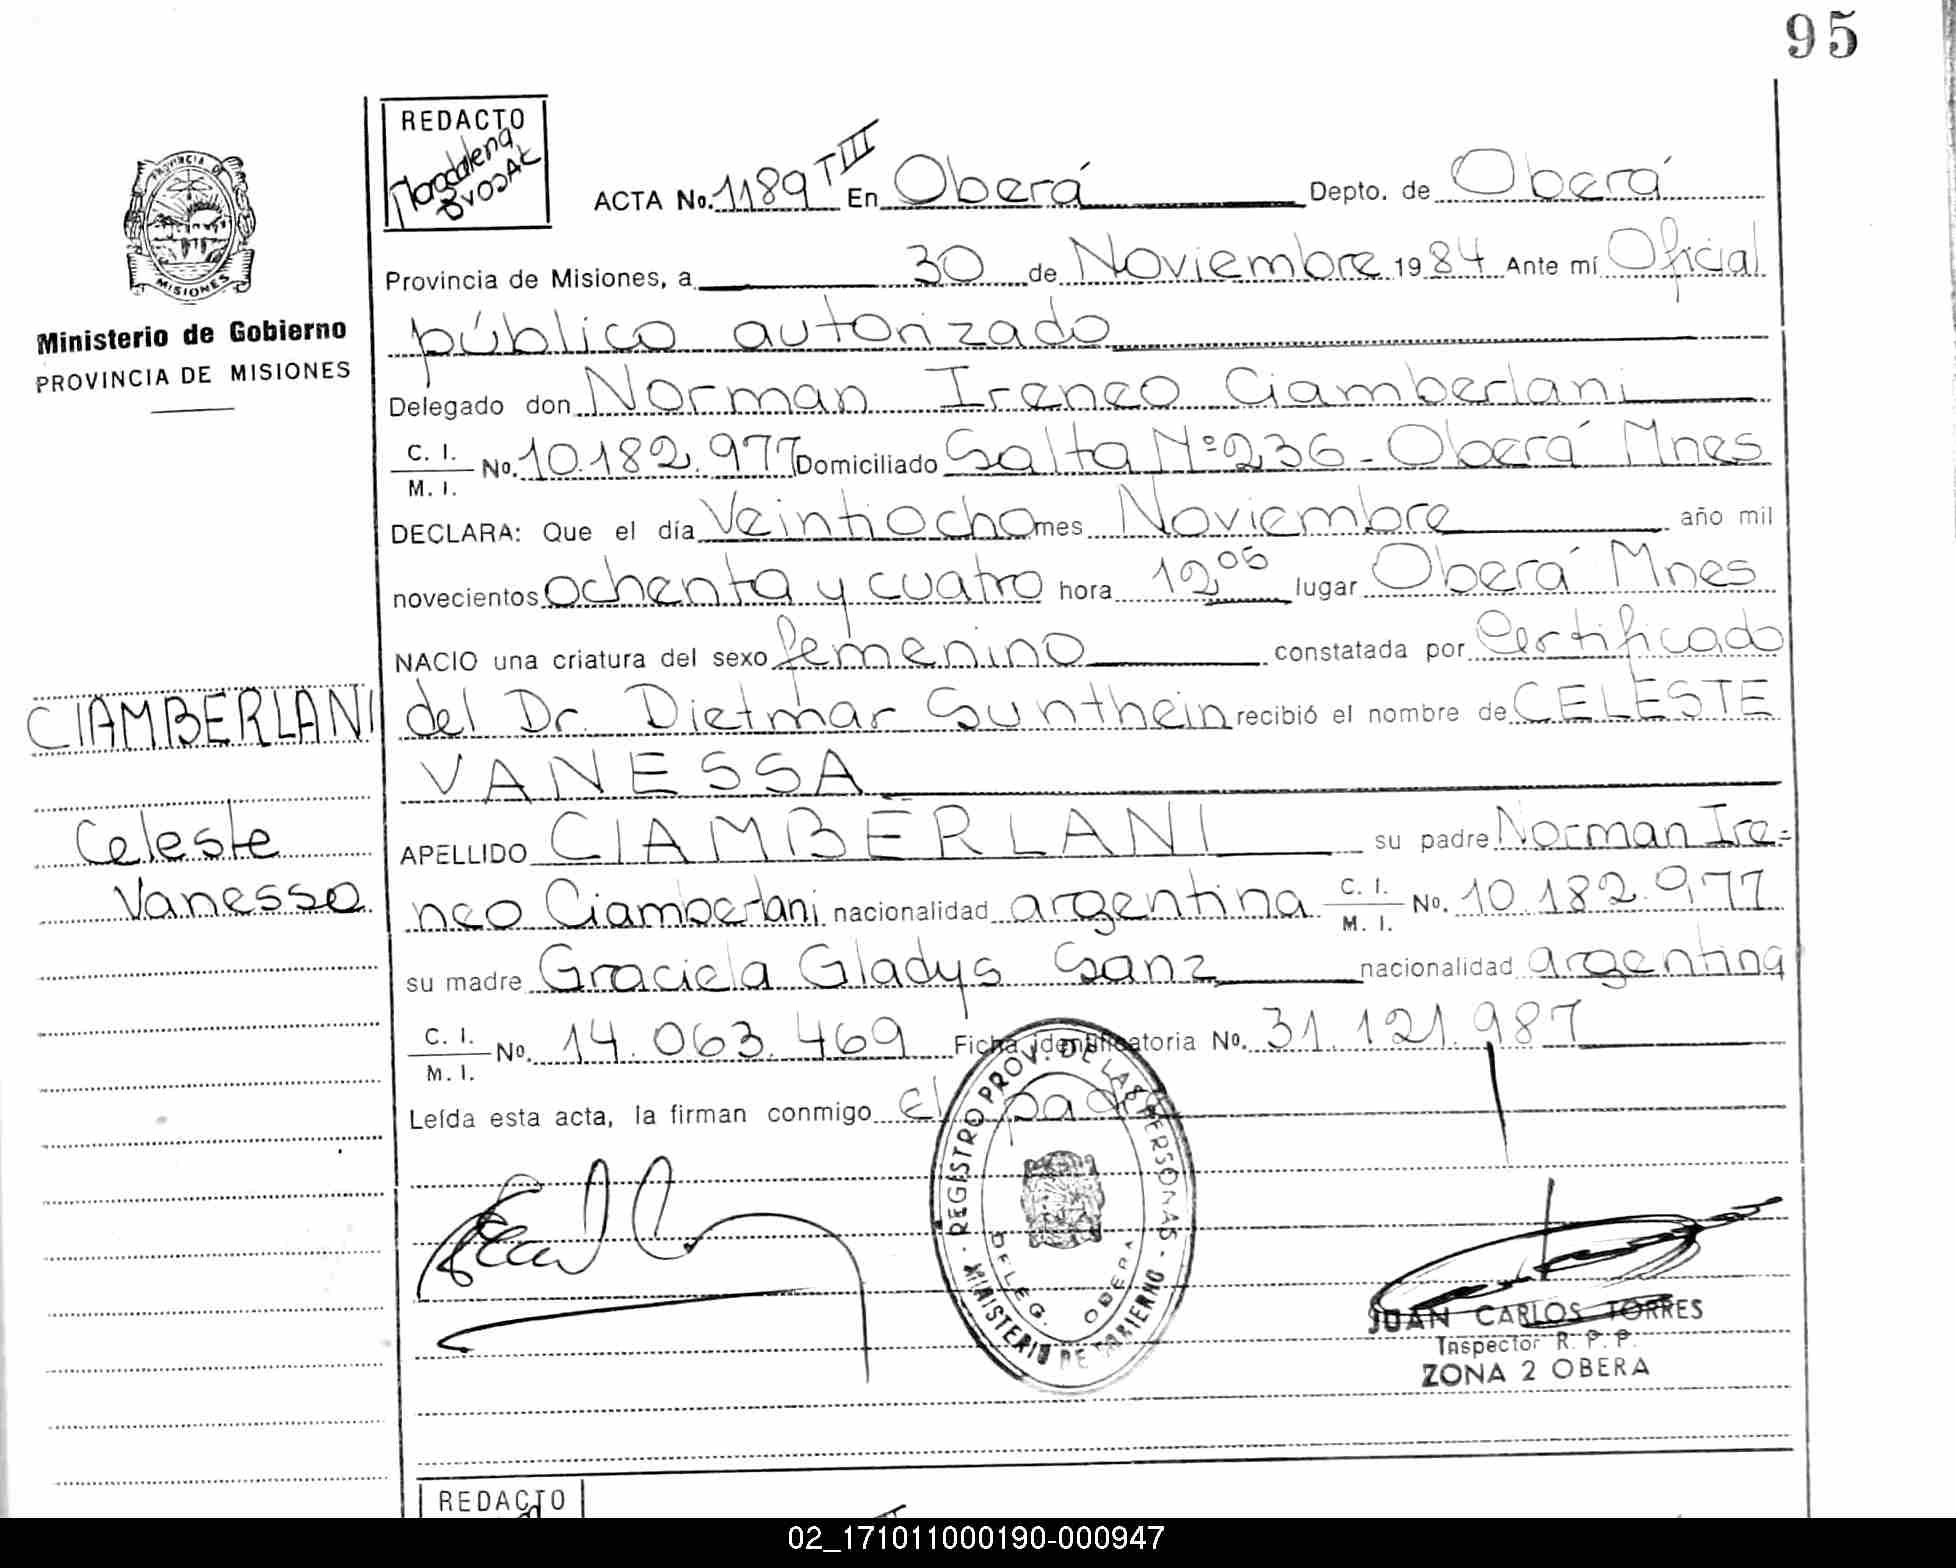 95
REDACTO
Magdalena
ACTA No. 1189 TIII En Oberá Depto. de Oberá
PROVINCIA DE
MISIONES
Provincia de Misiones, a 30 de Noviembre 1984 Ante mí Oficial
Ministerio de Gobierno
PROVINCIA DE MISIONES
público autorizado
Delegado don Norman Ireneo Ciamberlani
C. I.
M. I. No. 10.182.977 Domiciliado Salta Nº 236 - Oberá Mnes
DECLARA: Que el día Veintiocho mes Noviembre año mil
novecientos ochenta y cuatro hora 12,05 lugar Oberá Mnes
NACIO una criatura del sexo femenino constatada por Certificado
CIAMBERLANI
del Dr. Dietmar Sunthein recibió el nombre de CELESTE
VANESSA
Celeste
Vanessa
APELLIDO CIAMBERLANI su padre Norman Ire=
neo Ciamberlani nacionalidad argentina C. I. M. I. No. 10.182.977
su madre Graciela Gladys Sanz nacionalidad argentina
C. I.
M. I. No. 14.063.469 Ficha identificatoria No. 31.121.987
Leída esta acta, la firman conmigo el padre
REGISTRO PROV. DE LAS PERSONAS - MINISTERIO DE GOBIERNO -
DELEG. OBERA
JUAN CARLOS TORRES
Inspector R. P. P.
ZONA 2 OBERA
REDACTO
02_171011000190-000947